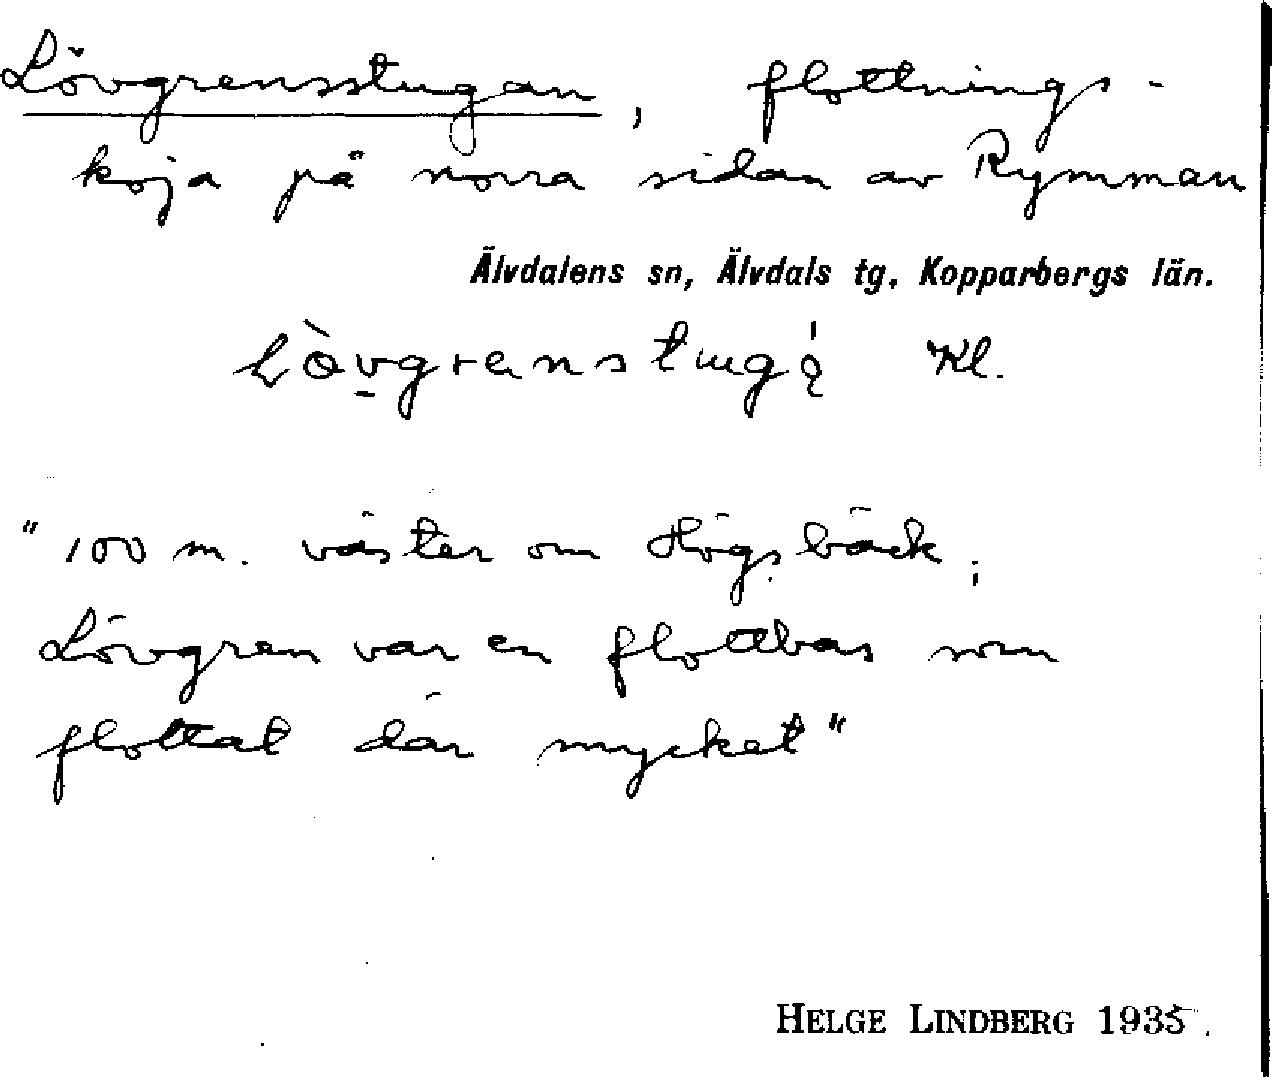 Lövgrensstugan, flottnings-
koja på norra sidan av Rymman
Älvdalens sn, Älvdals tg, Kopparbergs län.
Kl.
"100 m. väster om Högsbäck;
Lövgren var en flottbas som
flottat där mycket"
HELGE LINDBERG 1935.